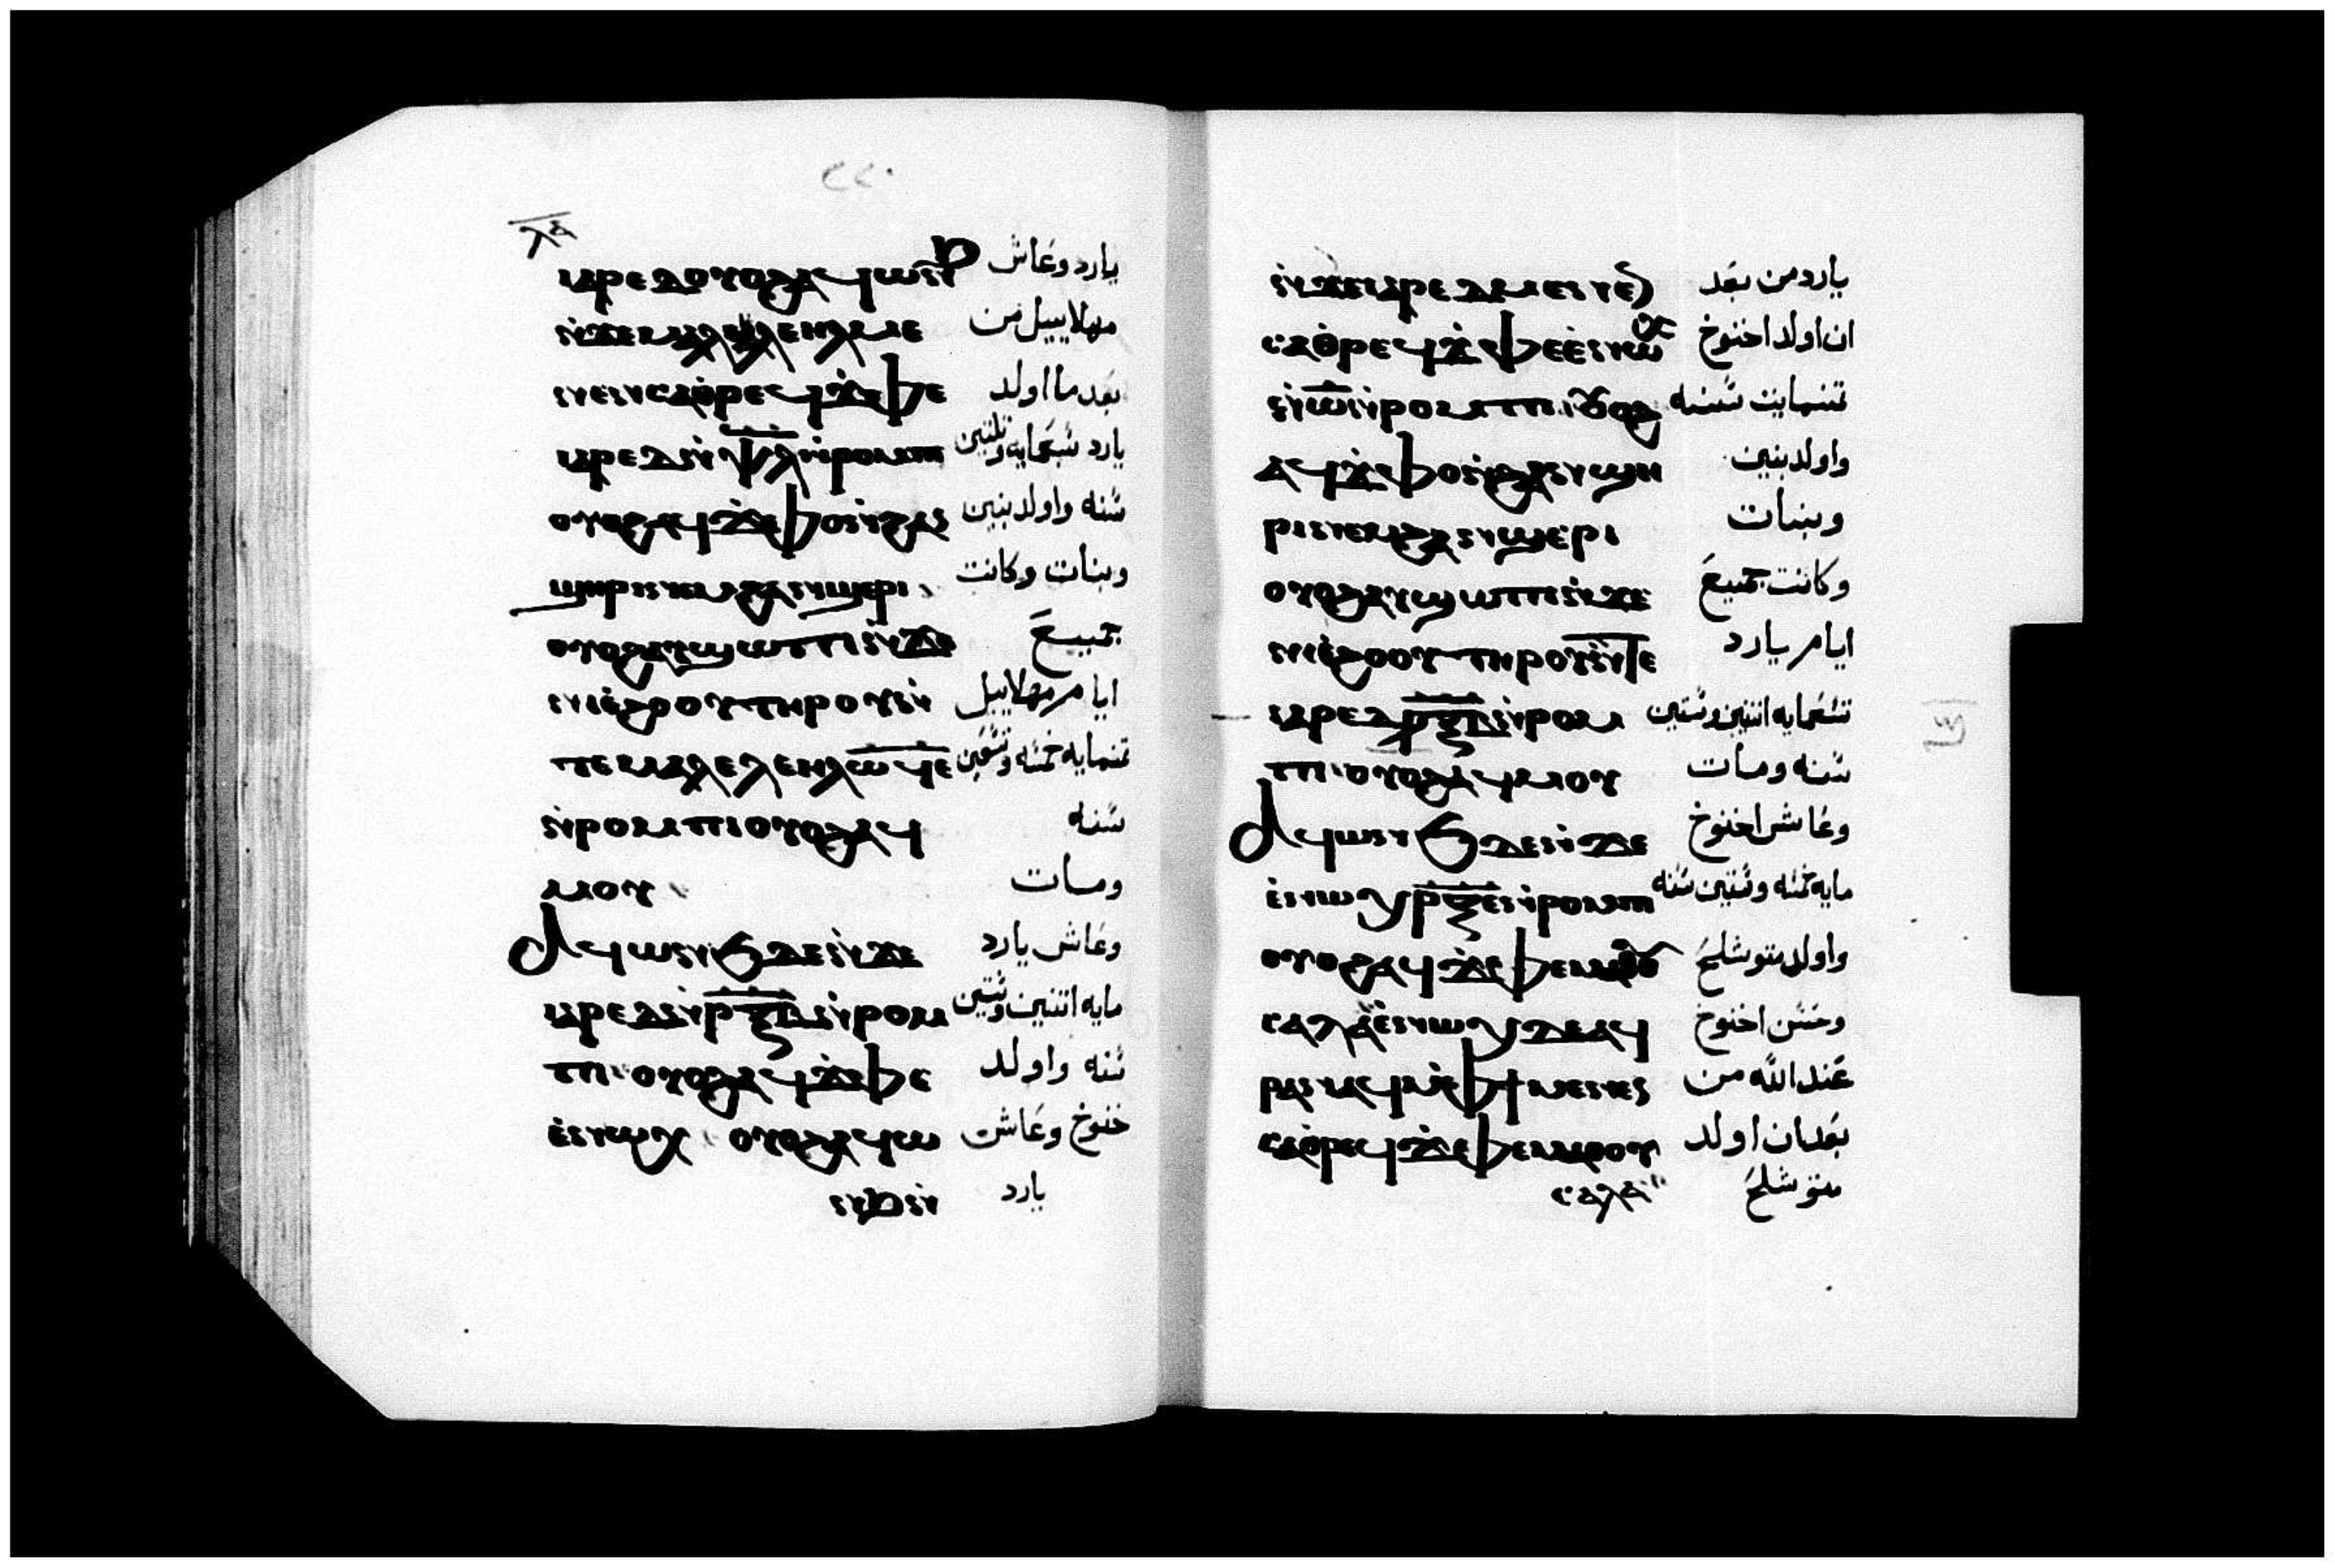 ⲗⲇ
ⲓⲁⲣⲉⲇ ⲟⲩⲟϩ ⲁϥⲱⲛϧ يارد وعاش
ⲛ̇ϫⲉ ⲙⲁⲗⲉⲗⲉⲏⲗ ⲙⲉ مهلاييل من
ⲛⲉⲛⲥⲁⲑ̇ⲣⲉϥϫ̇ⲫⲉ بعد ما اولد
ⲓⲁⲣⲉⲇ ⲛ̇ⲯ̅ⲗ̅ ⲛ̇ⲣⲟⲙⲡⲓ يارد سبعمايه وثلثين
ⲟⲩⲟϩ ⲁϥϫ̇ⲫⲟ ⲛ̇ϩⲁⲛ سنه واولد بنين
ϣⲏⲣⲓ ⲛⲉⲙ ϩⲁⲛϣⲉⲣⲓ وبنات وكانت
ⲟⲩⲟϩ ⲁⲩϣⲱⲡⲓ ⲛ̇ϫⲉ جميع
ⲛⲓⲉ̇ϩⲟⲟⲩ ⲧⲏⲣⲟⲩ ⲛ̇ ايام مهلاييل
ⲧⲉ ⲙⲁⲗⲉⲗⲉⲏⲗ ⲱ̅ϥ̅ⲉ̅ تمنمايه خمسه وتسعين
ⲛ̇ⲣⲟⲙⲡⲓ ⲟⲩⲟϩ ⲁϥ سنه
ⲙⲟⲩ ومات
ⲁϥⲱⲛϧ ⲇⲉ ⲛ̇ϫⲉ وعاش يارد
ⲓⲁⲣⲉⲇ ⲛ̇ⲣ̅ⲝ̅ⲃ̅ ⲛ̇ⲣⲟⲙ مايه اثنين وستين
ⲡⲓ ⲟⲩⲟϩ ⲁϥϫ̇ⲫⲉ سنه واولد
ⲉ̇ⲛⲱⲭ ⲟⲩⲟϩ ⲁϥⲱ خنوخ وعاش
ⲛϧ ⲛ̇ يارد
ⲛ̇ϫⲉ ⲓⲁⲣⲉⲇ ⲙⲉⲛⲉⲛ يارد من بعد
ⲥⲁⲑ̇ⲣⲉϥϫ̇ⲫⲉ ⲉ̇ⲛⲱⲭ ان اولد اخنوخ
ⲛ̇ⲱ̅ ⲛ̇ⲣⲟⲙⲡⲓ ⲟⲩⲟϩ تمنمايت سنه
ⲁϥϫ̇ⲫⲟ ⲛ̇ϩⲁⲛϣⲏ واولد بنين
ⲣⲓ ⲛⲉⲙ ϩⲁⲛϣⲉⲣⲓ وبنات
ⲟⲩⲟϩ ⲁⲩϣⲱⲡⲓ ⲛ̇ϫⲉ وكانت جميع
ⲛⲓⲉ̇ϩⲟⲟⲩ ⲧⲏⲣⲟⲩ ⲛ̇ⲧⲉ ايام يارد
ⲓⲁⲣⲉⲇ ⲝ̅ⲃ̅ ⲛ̇ⲣⲟⲙ تسعمايه اثنين وستين
ⲡⲓ ⲟⲩⲟϩ ⲁϥⲙⲟⲩ سنه ومات
ⲁϥⲱⲛϧ ⲇⲉ ⲛ̇ϫⲉ وعاش اخنوخ
ⲉ̇ⲛⲱⲭ ⲣ̅ⲝ̅ⲉ̅ ⲛ̇ⲣⲟⲙⲡⲓ مايه خمسه وستين سنه
ⲟⲩⲟϩ ⲁϥϫ̇ⲫⲉ ⲙⲁⲑⲟⲩ واولد متوشلح
ⲥⲁⲗⲁ ⲉ̇ⲛⲱⲭ ⲇⲉ ⲁϥ وحسن اخنوخ
ⲣⲁⲛⲁϥ ⲙ̇ⲫϯ ⲙⲉⲛⲉⲛ عند الله من
ⲥⲁⲑ̇ⲣⲉϥϫ̇ⲫⲉ ⲙⲁⲑⲟⲩ بعد ان اولد
ⲥⲁⲗⲁ متوشلح